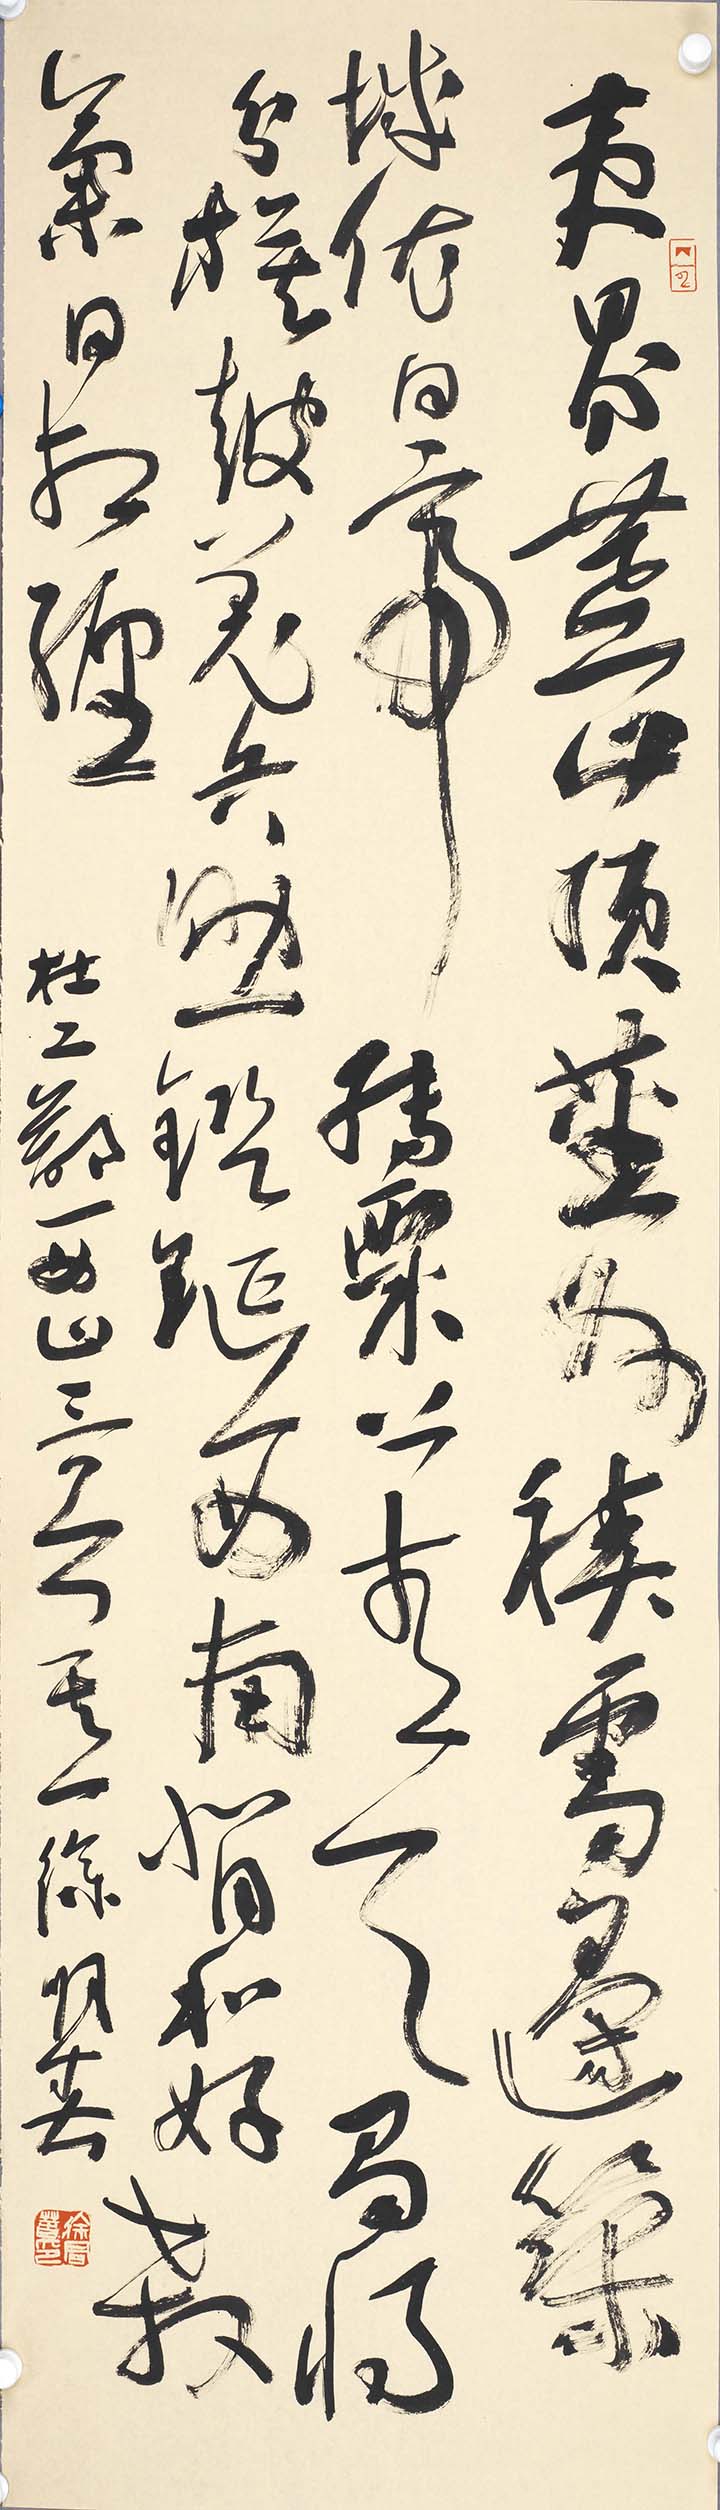 夷界荒山頂蕃州積雪邊築
城依白帝轉粟上青天蜀將
分旗鼓羌兵助鎧鋋西南背和好殺
氣日相纏
杜工部西山三首其一徐